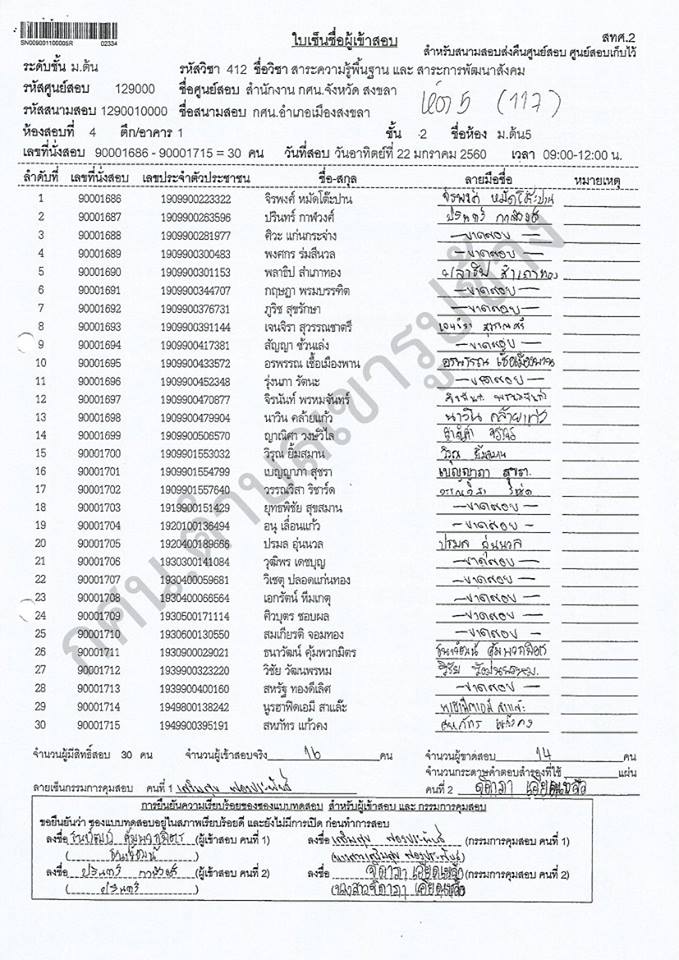 SN009001100005R 02334
ใบเซ็นชื่อผู้เข้าสอบ
สทศ.2
สำหรับสนามสอบส่งคืนศูนย์สอบ ศูนย์สอบเก็บไว้
ระดับชั้น ม.ต้น รหัสวิชา 412 ชื่อวิชา สาระความรู้พื้นฐาน และ สาระการพัฒนาสังคม
รหัสศูนย์สอบ 129000 ชื่อศูนย์สอบ สำนักงาน กศน.จังหวัด สงขลา
ห้อง 5 (117)
รหัสสนามสอบ 1290010000 ชื่อสนามสอบ กศน.อำเภอเมืองสงขลา
ห้องสอบที่ 4 ตึก/อาคาร 1 ชั้น 2 ชื่อห้อง ม.ต้น5
เลขที่นั่งสอบ 90001686 - 90001715 = 30 คน วันที่สอบ วันอาทิตย์ที่ 22 มกราคม 2560 เวลา 09:00-12:00 น.
ลำดับที่ เลขที่นั่งสอบ เลขประจำตัวประชาชน ชื่อ-สกุล ลายมือชื่อ หมายเหตุ
1 90001686 1909900223322 จิรพงศ์ หมัดโต๊ะปาน จิรพงศ์ หมัดโต๊ะปาน
2 90001687 1909900263596 ปรินทร์ กาฬวงศ์ ปรินทร์ กาฬวงศ์
3 90001688 1909900281977 ศิวะ แก่นกระจ่าง —ขาดสอบ—
4 90001689 1909900300483 พงศกร ร่มสีนวล —ขาดสอบ—
5 90001690 1909900301153 พลาธิป สำเภาทอง พลาธิป สำเภาทอง
6 90001691 1909900344707 กฤษฎา พรมบรรทิต —ขาดสอบ—
7 90001692 1909900376731 ภูริช สุขรักษา —ขาดสอบ—
8 90001693 1909900391144 เจนจิรา สุวรรณชาตรี เจนจิรา
9 90001694 1909900417381 สัญญา ช้วนเล่ง —ขาดสอบ—
10 90001695 1909900433572 อรพรรณ เชื้อเมืองพาน อรพรรณ เชื้อเมืองพาน
11 90001696 1909900452348 รุ่งนภา รัตนะ —ขาดสอบ—
12 90001697 1909900470877 จิรนันท์ พรหมจันทร์
13 90001698 1909900479904 นาวิน คล้ายแก้ว นาวิน
14 90001699 1909900506570 ญาณิศา วงษ์วิไล
15 90001700 1909901553032 วิรุณ ยิ้มสมาน วิรุณ ยิ้มสมาน
16 90001701 1909901554799 เบญญาภา สุชรา เบญญาภา สุชรา
17 90001702 1909901557640 วรรณวิสา ริชาร์ด วรรณวิสา ริชาร์ด
18 90001703 1919900151429 ยุทธพิชัย สุขสมาน —ขาดสอบ—
19 90001704 1920100136494 อนุ เลื่อนแก้ว —ขาดสอบ—
20 90001705 1920400189666 ปรมล อุ่นนวล ปรมล อุ่นนวล
21 90001706 1930300141084 วุฒิพร เดชบุญ —ขาดสอบ—
22 90001707 1930400059681 วิเชตุ ปลอดแก่นทอง —ขาดสอบ—
23 90001708 1930400066564 เอกรัตน์ หีมเกตุ —ขาดสอบ—
24 90001709 1930500171114 ศิวบุตร ชอบผล —ขาดสอบ—
25 90001710 1930600130550 สมเกียรติ จอมทอง —ขาดสอบ—
26 90001711 1930900029021 ธนาวัฒน์ คุ้มพวกมิตร ธนาวัฒน์ คุ้มพวกมิตร
27 90001712 1939900323220 วิชัย วัฒนพรหม วิชัย วัฒนพรหม
28 90001713 1939900400160 สหรัฐ ทองดีเลิศ —ขาดสอบ—
29 90001714 1949800138242 นูรฮาฟิดเอมี สาแล๊ะ
30 90001715 1949900395191 สหภัทร แก้วคง สหภัทร แก้วคง
กศน.ตำบลเขารูปช้าง
จำนวนผู้มีสิทธิ์สอบ 30 คน จำนวนผู้เข้าสอบจริง 16 คน จำนวนผู้ขาดสอบ 14 คน
จำนวนกระดาษคำตอบสำรองที่ใช้ แผ่น
ลายเซ็นกรรมการคุมสอบ คนที่ 1 คนที่ 2
การยืนยันความเรียบร้อยของซองแบบทดสอบ สำหรับผู้เข้าสอบ และ กรรมการคุมสอบ
ขอยืนยันว่า ซองแบบทดสอบอยู่ในสภาพเรียบร้อยดี และยังไม่มีการเปิด ก่อนทำการสอบ
ลงชื่อ ธนาวัฒน์ คุ้มพวกมิตร (ผู้เข้าสอบ คนที่ 1) ลงชื่อ (กรรมการคุมสอบ คนที่ 1)
(ธนาวัฒน์)
ลงชื่อ ปรินทร์ กาฬวงศ์ (ผู้เข้าสอบ คนที่ 2) ลงชื่อ (กรรมการคุมสอบ คนที่ 2)
(ปรินทร์)